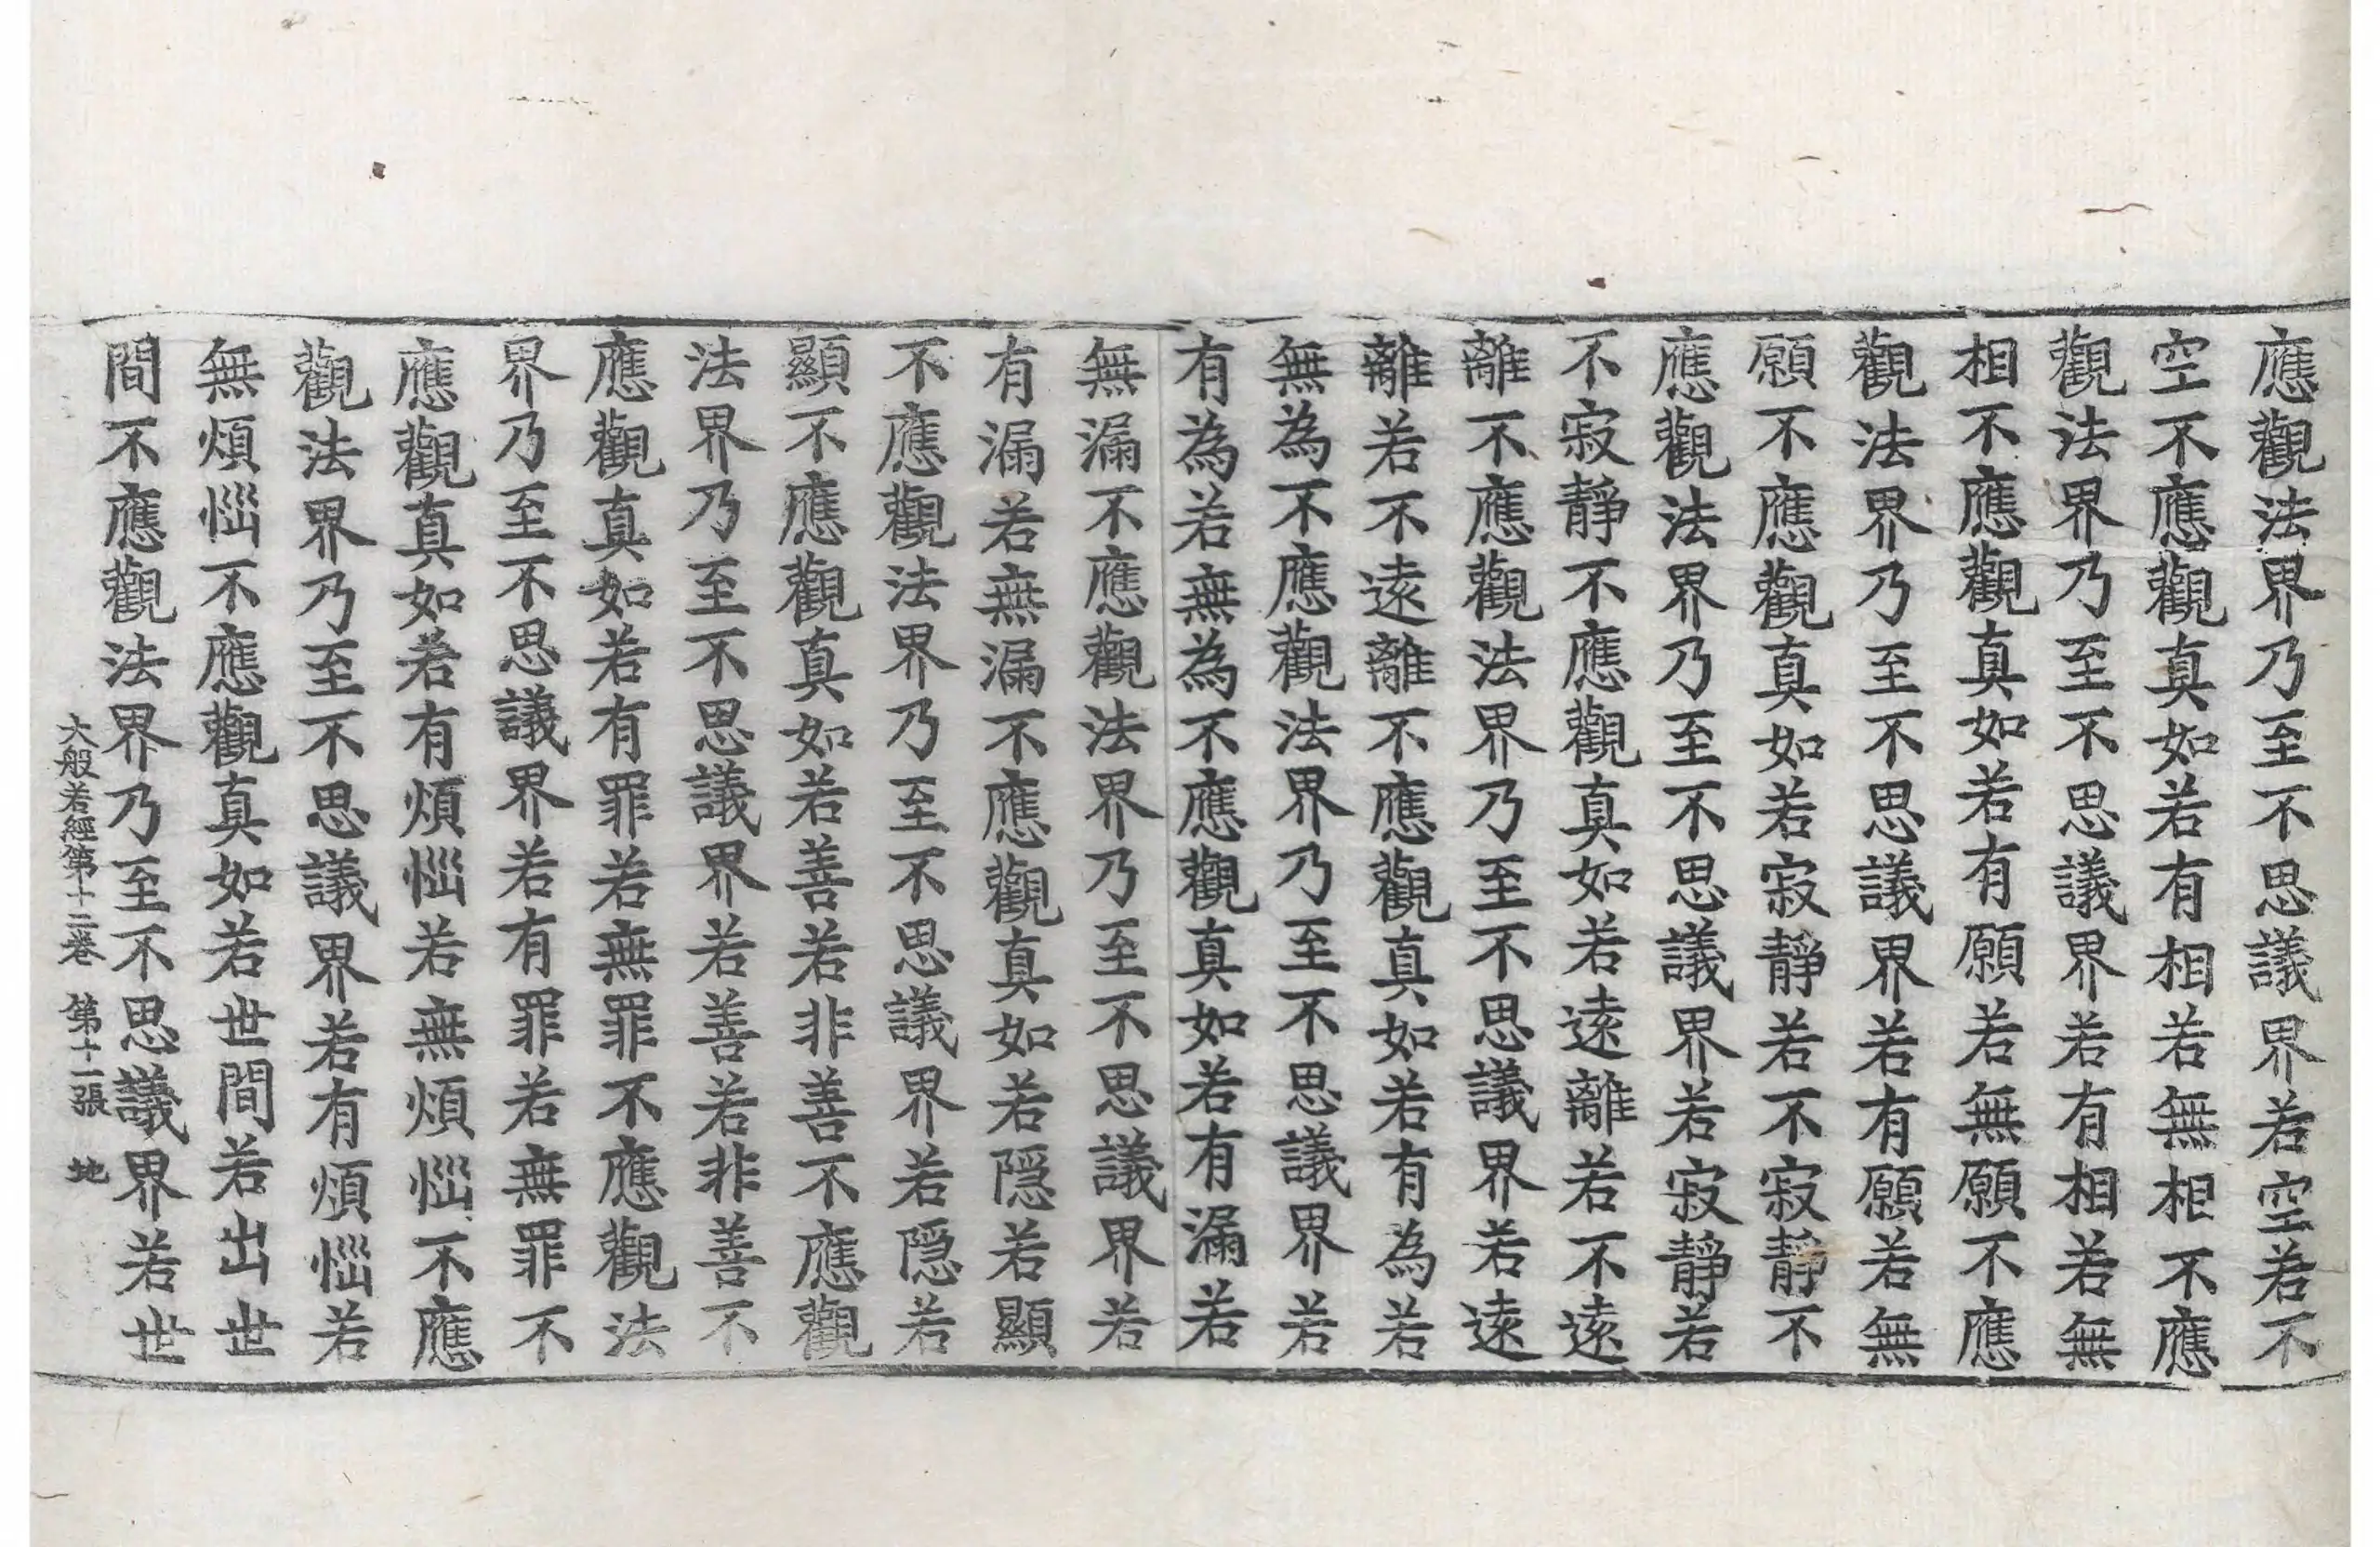 應觀法界乃至不思議界若空若不
空不應觀真如若有相若無相不應
觀法界乃至不思議界若有相若無
相不應觀真如若有願若無願不應
觀法界乃至不思議界若有願若無
願不應觀真如若寂靜若不寂靜不
應觀法界乃至不思議界若寂靜若
不寂靜不應觀真如若遠離若不遠
離不應觀法界乃至不思議界若遠
離若不遠離不應觀真如若有為若
無為不應觀法界乃至不思議界若
有為若無為不應觀真如若有漏若
無漏不應觀法界乃至不思議界若
有漏若無漏不應觀真如若隱若顯
不應觀法界乃至不思議界若隱若
顯不應觀真如若善若非善不應觀
法界乃至不思議界若善若非善不
應觀真如若有罪若無罪不應觀法
界乃至不思議界若有罪若無罪不
應觀真如若有煩惱若無煩惱不應
觀法界乃至不思議界若有煩惱若
無煩惱不應觀真如若世間若出世
間不應觀法界乃至不思議界若世
大般若經第十二卷 第十一張 地